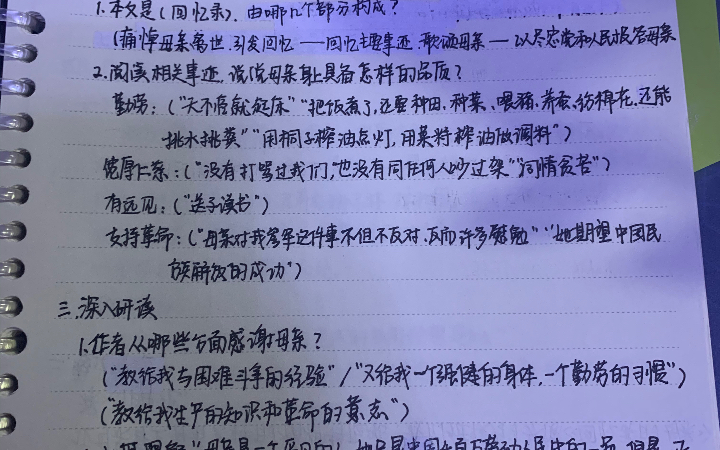 1.本文是(回忆录),由哪几个部分构成?
(痛悼母亲离世,引发回忆——回忆主要事迹,歌颂母亲——以尽忠党和人民报答母亲
2.阅读相关事迹,说说母亲身上具备怎样的品质?
勤劳:("天不亮就起床""把饭煮了,还要种田、种菜、喂猪、养蚕、纺棉花,还能
挑水挑粪""用桐子榨油点灯,用菜籽榨油做调料")
宽厚仁慈:("没有打骂过我们,""也没有同任何人吵过架""同情贫苦")
有远见:("送子读书")
支持革命:("母亲对我参军这件事不但不反对,反而许多慰勉""她期望中国民
族解放的成功")
三.深入研读
1.作者从哪些方面感谢母亲?
("教给我与困难斗争的经验"/"又给我一个强健的身体,一个勤劳的习惯")
("教给我生产的知识和革命的意志")